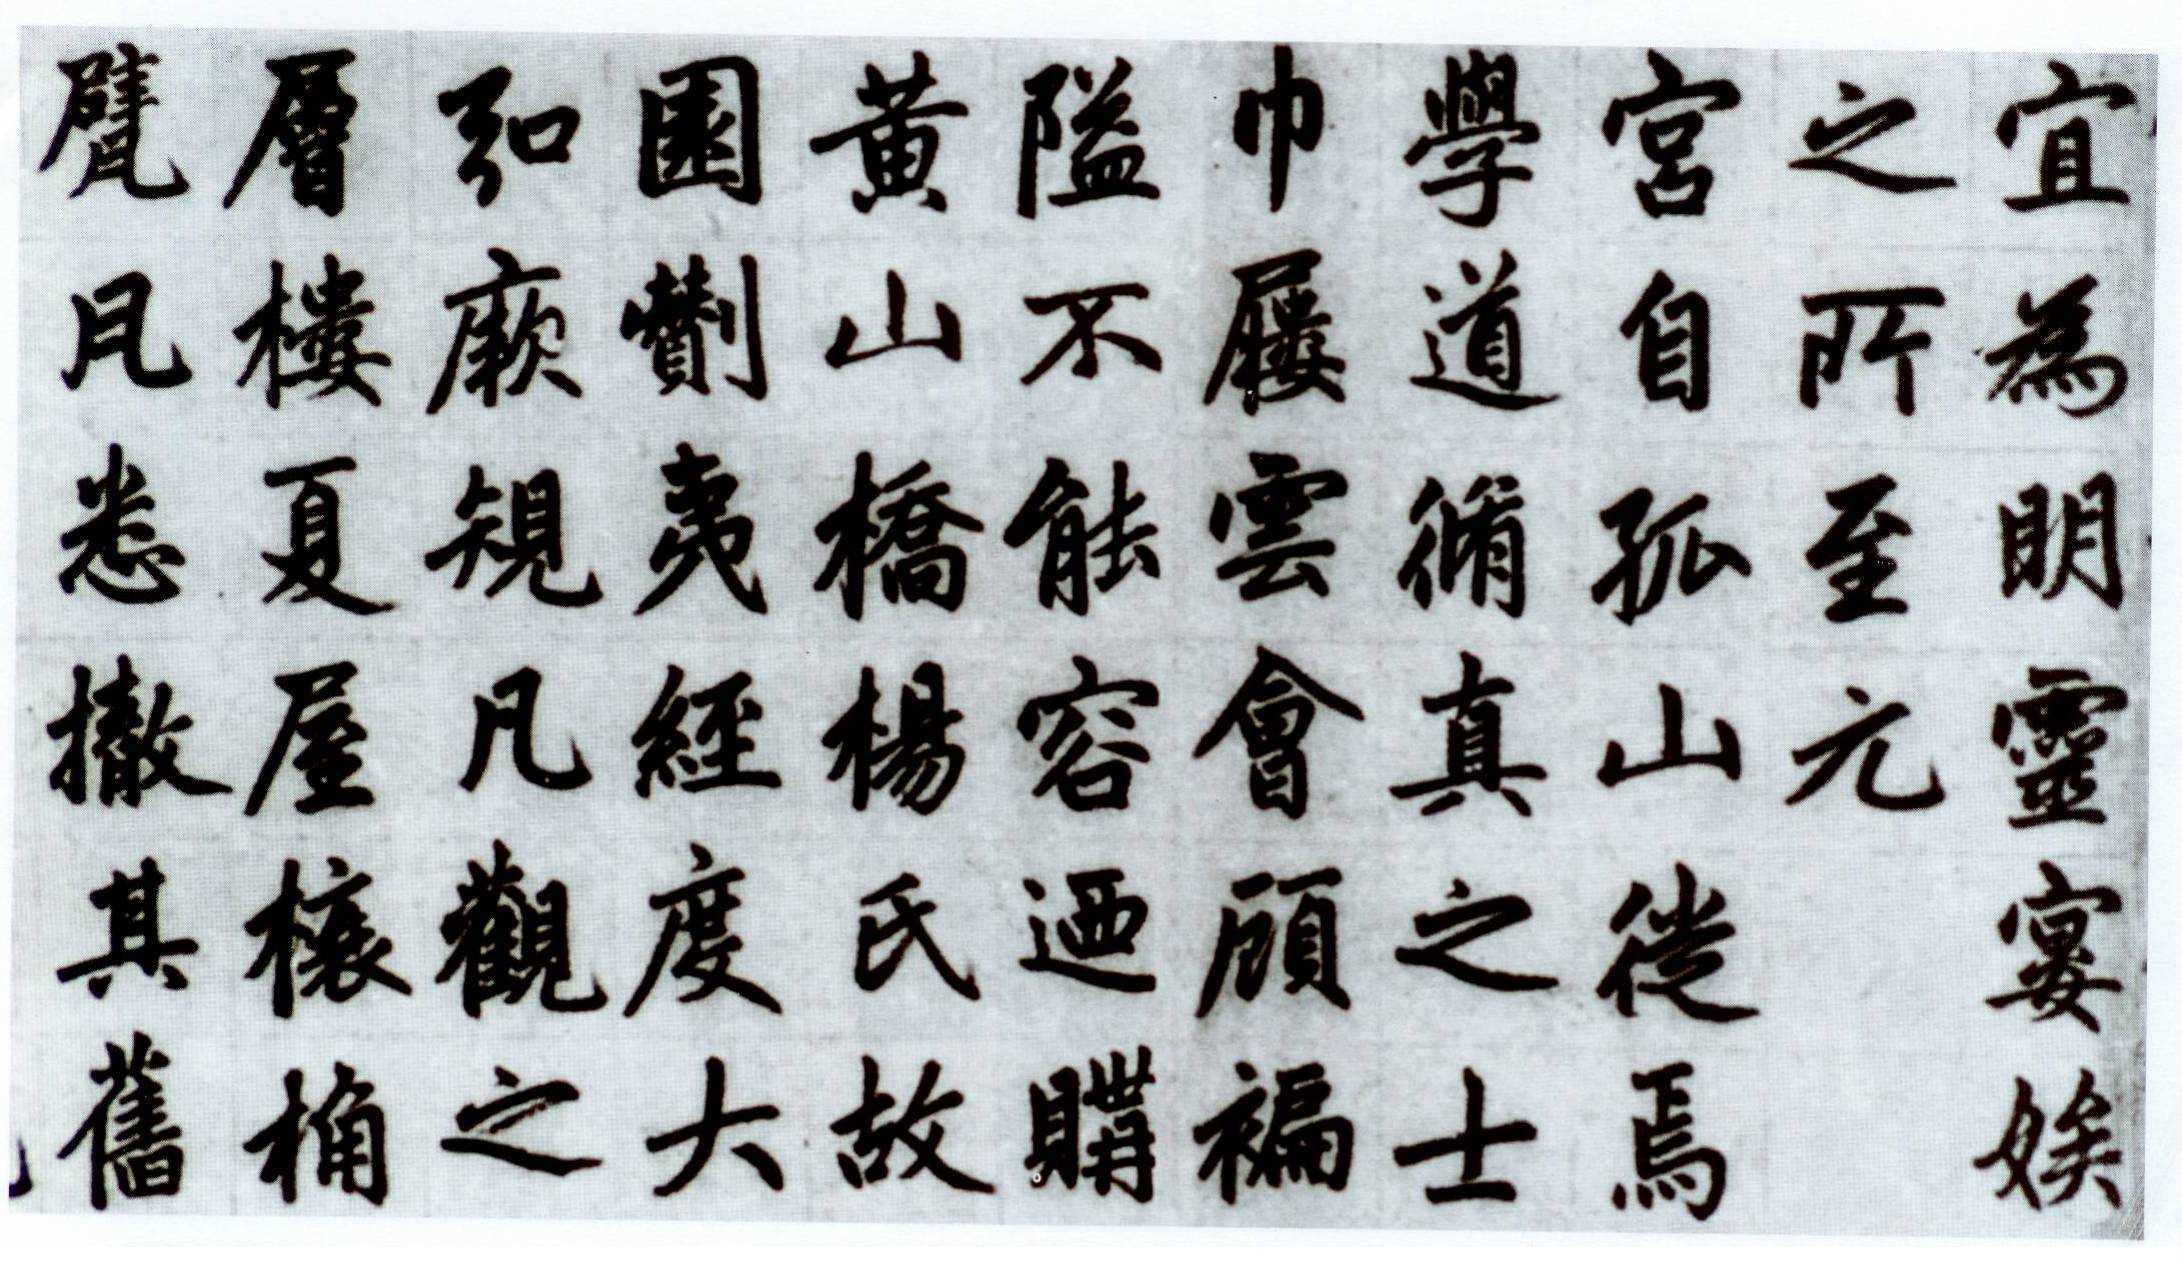 宜為明靈宴娭
之所至元
宮自孤山徙焉
學道脩真之士
巾屨雲會顧褊
隘不能容迺購
黃山橋楊氏故
園劗夷經度大
弘厥規凡觀之
層樓夏屋榱桷
甓凡悉撤其舊